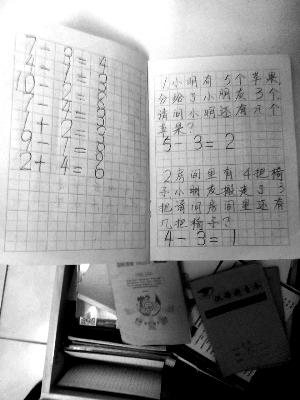 7 - 3 = 4
4 - 1 = 3
10 - 2 = 8
9 - 1 = 8
2 + 4 = 6
1小明有5个苹果,
分给了小朋友3个,
请问小明还有几个
苹果?
5 - 3 = 2
2房间里有4把椅
子小朋友搬走了3
把请问房间里还有
几把椅子?
4 - 3 = 1